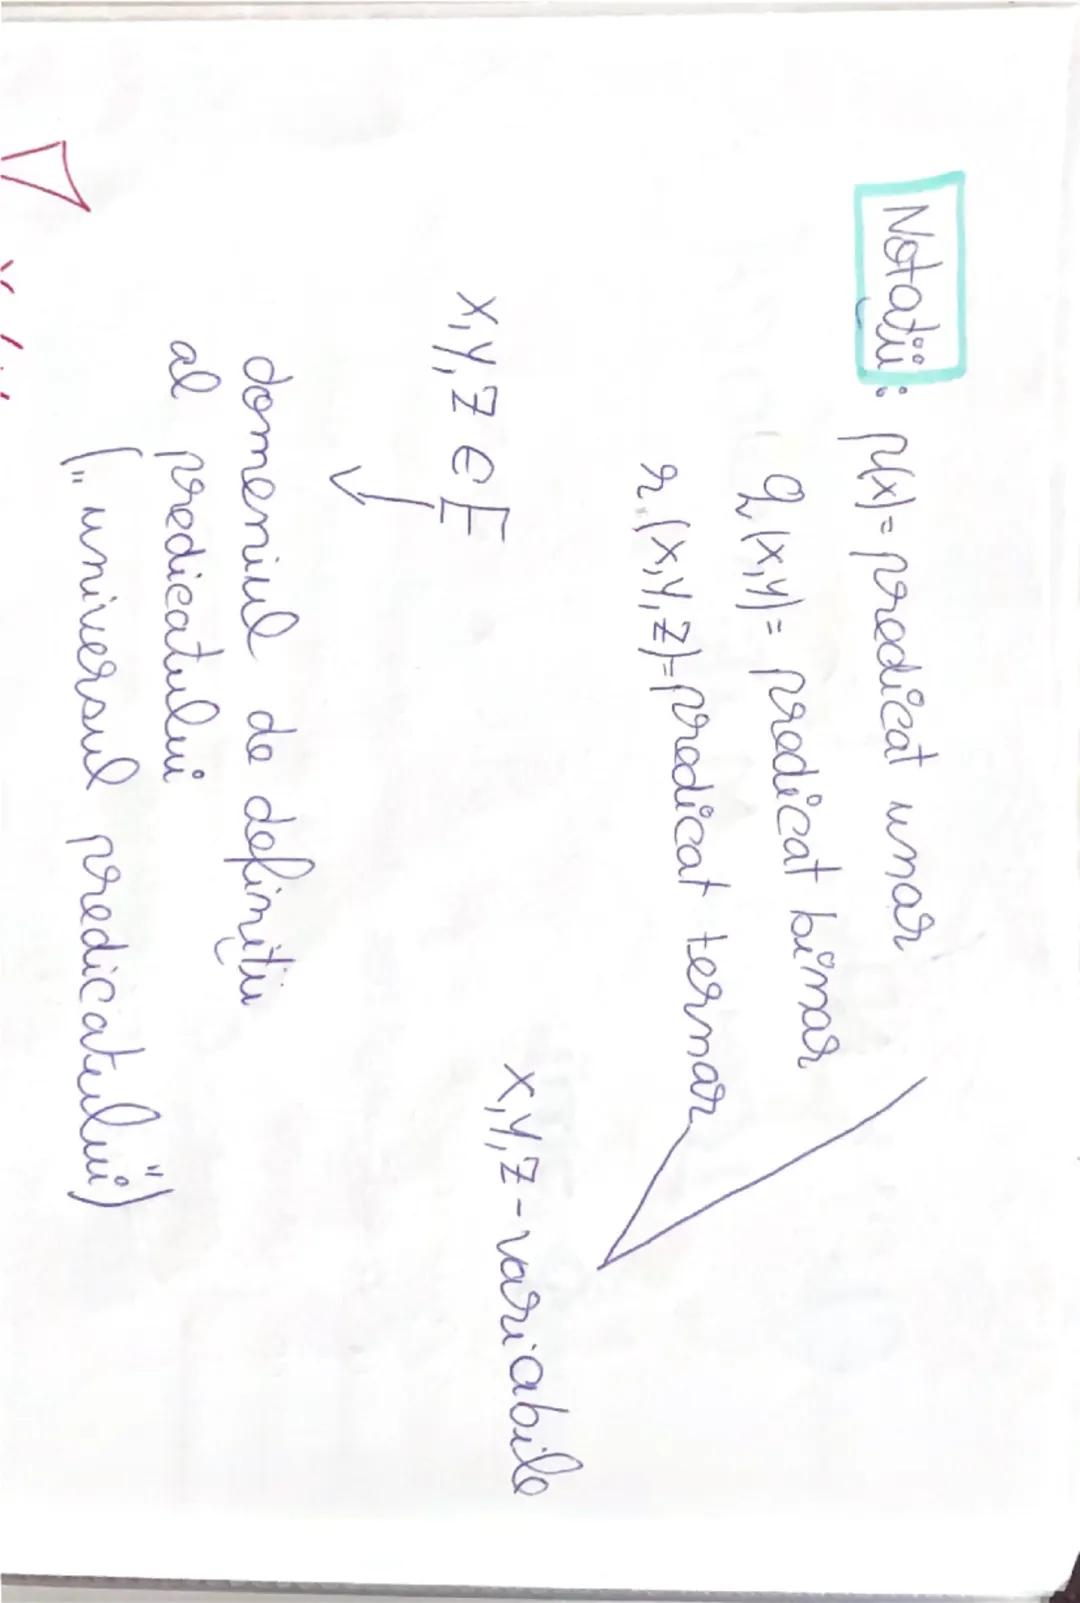 Notații: p(x)= predicat unar
q(x,y)= predicat binar
r(x,y,z)= predicat ternar
x,y,z - variabile
x,y,z ∈ E
↓
domeniul de definiții
al predicatului
(„universul predicatului")